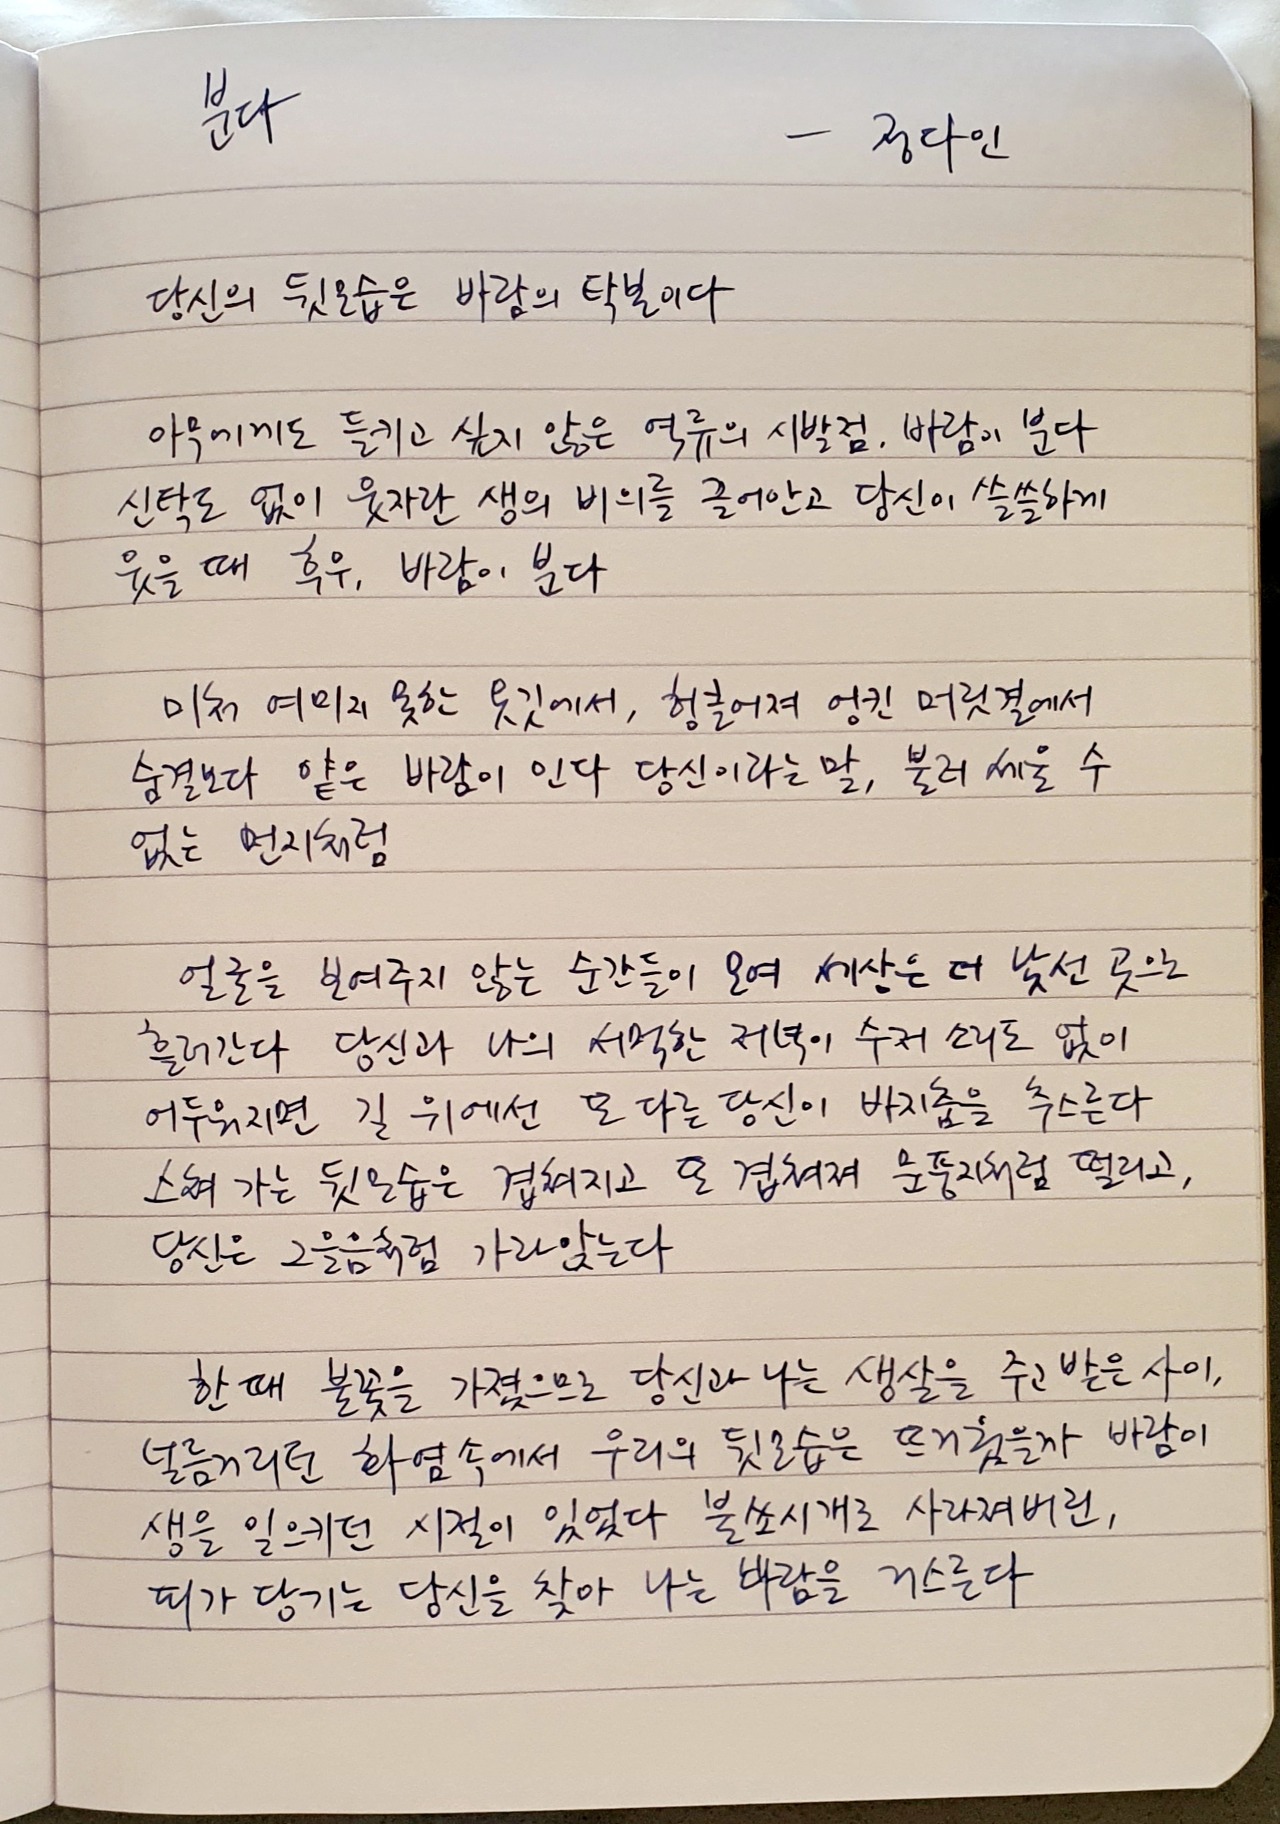 분다
— 정다인
당신의 뒷모습은 바람의 탁본이다
아무에게도 들키고 싶지 않은 역류의 시발점, 바람이 분다
신탁도 없이 웃자란 생의 비의를 끌어안고 당신이 쓸쓸하게
웃을 때 후우, 바람이 분다
미처 여미지 못한 옷깃에서, 헝클어져 엉킨 머릿결에서
숨결보다 얕은 바람이 인다 당신이라는 말, 불러 세울 수
없는 먼지처럼
얼굴을 보여주지 않는 순간들이 모여 세상은 더 낯선 곳으로
흘러간다 당신과 나의 서먹한 저녁이 수저 소리도 없이
어두워지면 길 위에선 또 다른 당신이 바지춤을 추스른다
스쳐 가는 뒷모습은 겹쳐지고 또 겹쳐져 문풍지처럼 떨리고,
당신은 그을음처럼 가라앉는다
한때 불꽃을 가졌으므로 당신과 나는 생살을 주고 받은 사이,
널름거리던 화염속에서 우리의 뒷모습은 뜨거웠을까 바람이
생을 일으키던 시절이 있었다 불쏘시개로 사라져버린,
띠가 당기는 당신을 찾아 나는 바람을 거스른다